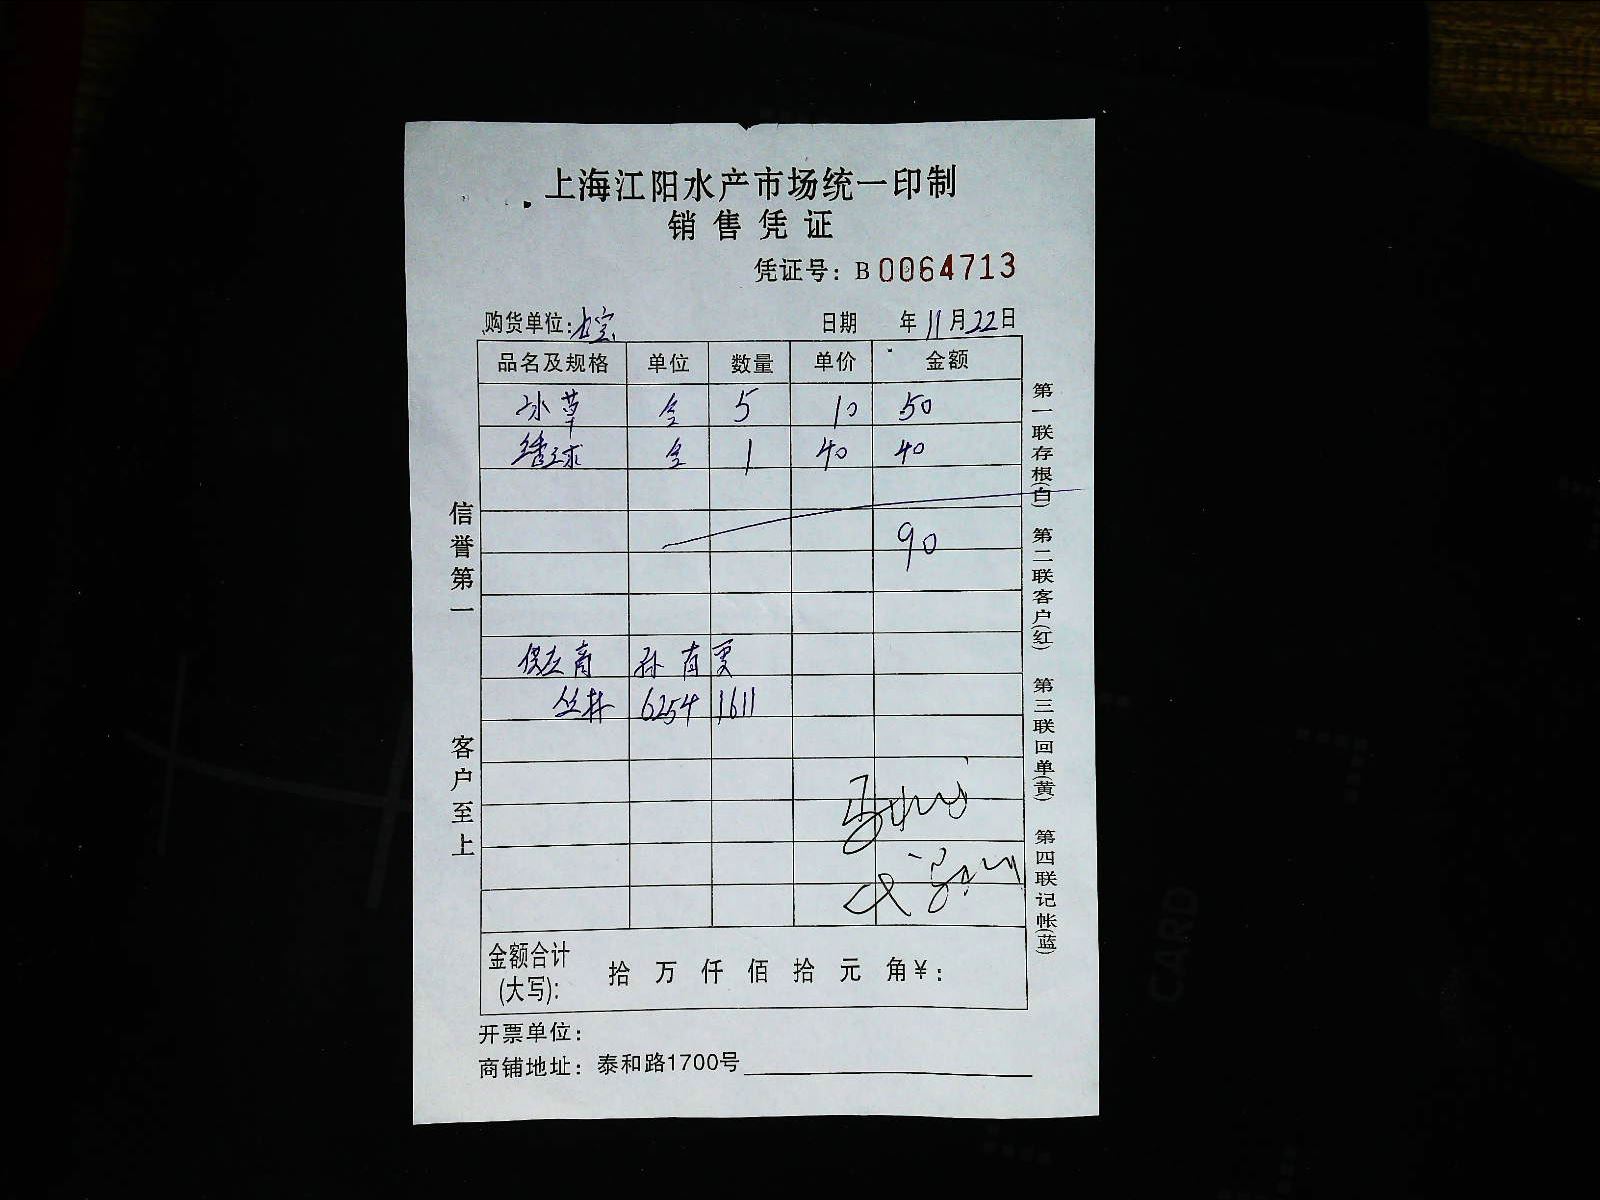 上海江阳水产市场统一印制
销售凭证
凭证号：B 0064713
购货单位： 日期 年 11 月 22 日
品名及规格 单位 数量 单价 金额
冰草 盒 5 10 50
绣球 盒 1 40 40
90
供应商 孙
丛林 6254 1611
金额合计(大写)： 拾 万 仟 佰 拾 元 角 ¥：
开票单位：
商铺地址：泰和路1700号
信誉第一
客户至上
第一联存根(白) 第二联客户(红) 第三联回单(黄) 第四联记帐(蓝)